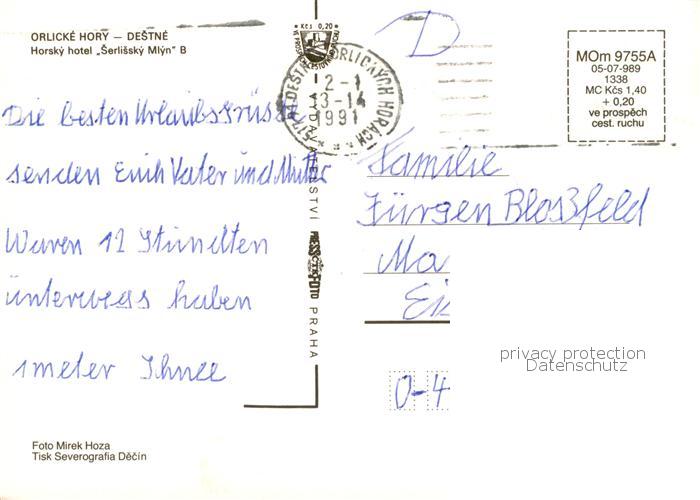 ORLICKÉ HORY — DEŠTNÉ
Horský hotel „Šerlišský Mlýn" B
Kčs 0,20
VE PROSPĚCH CESTOVNÍHO RUCHU
517 91 DEŠTNÉ V ORLICKÝCH HORÁCH
2-1
13-14
1991
D
MOm 9755A
05-07-989
1338
MC Kčs 1,40
+ 0,20
ve prospěch
cest. ruchu
Die besten Urlaubsgrüsse
senden Euch Vater und Mutter
Waren 12 Stundten
unterwegs haben
1meter Schnee
VYDAVATELSTVÍ PRESSFOTO PRAHA
Familie
Jürgen Bloßfeld
Ma
Ei
O-4
privacy protection
Datenschutz
Foto Mirek Hoza
Tisk Severografia Děčín